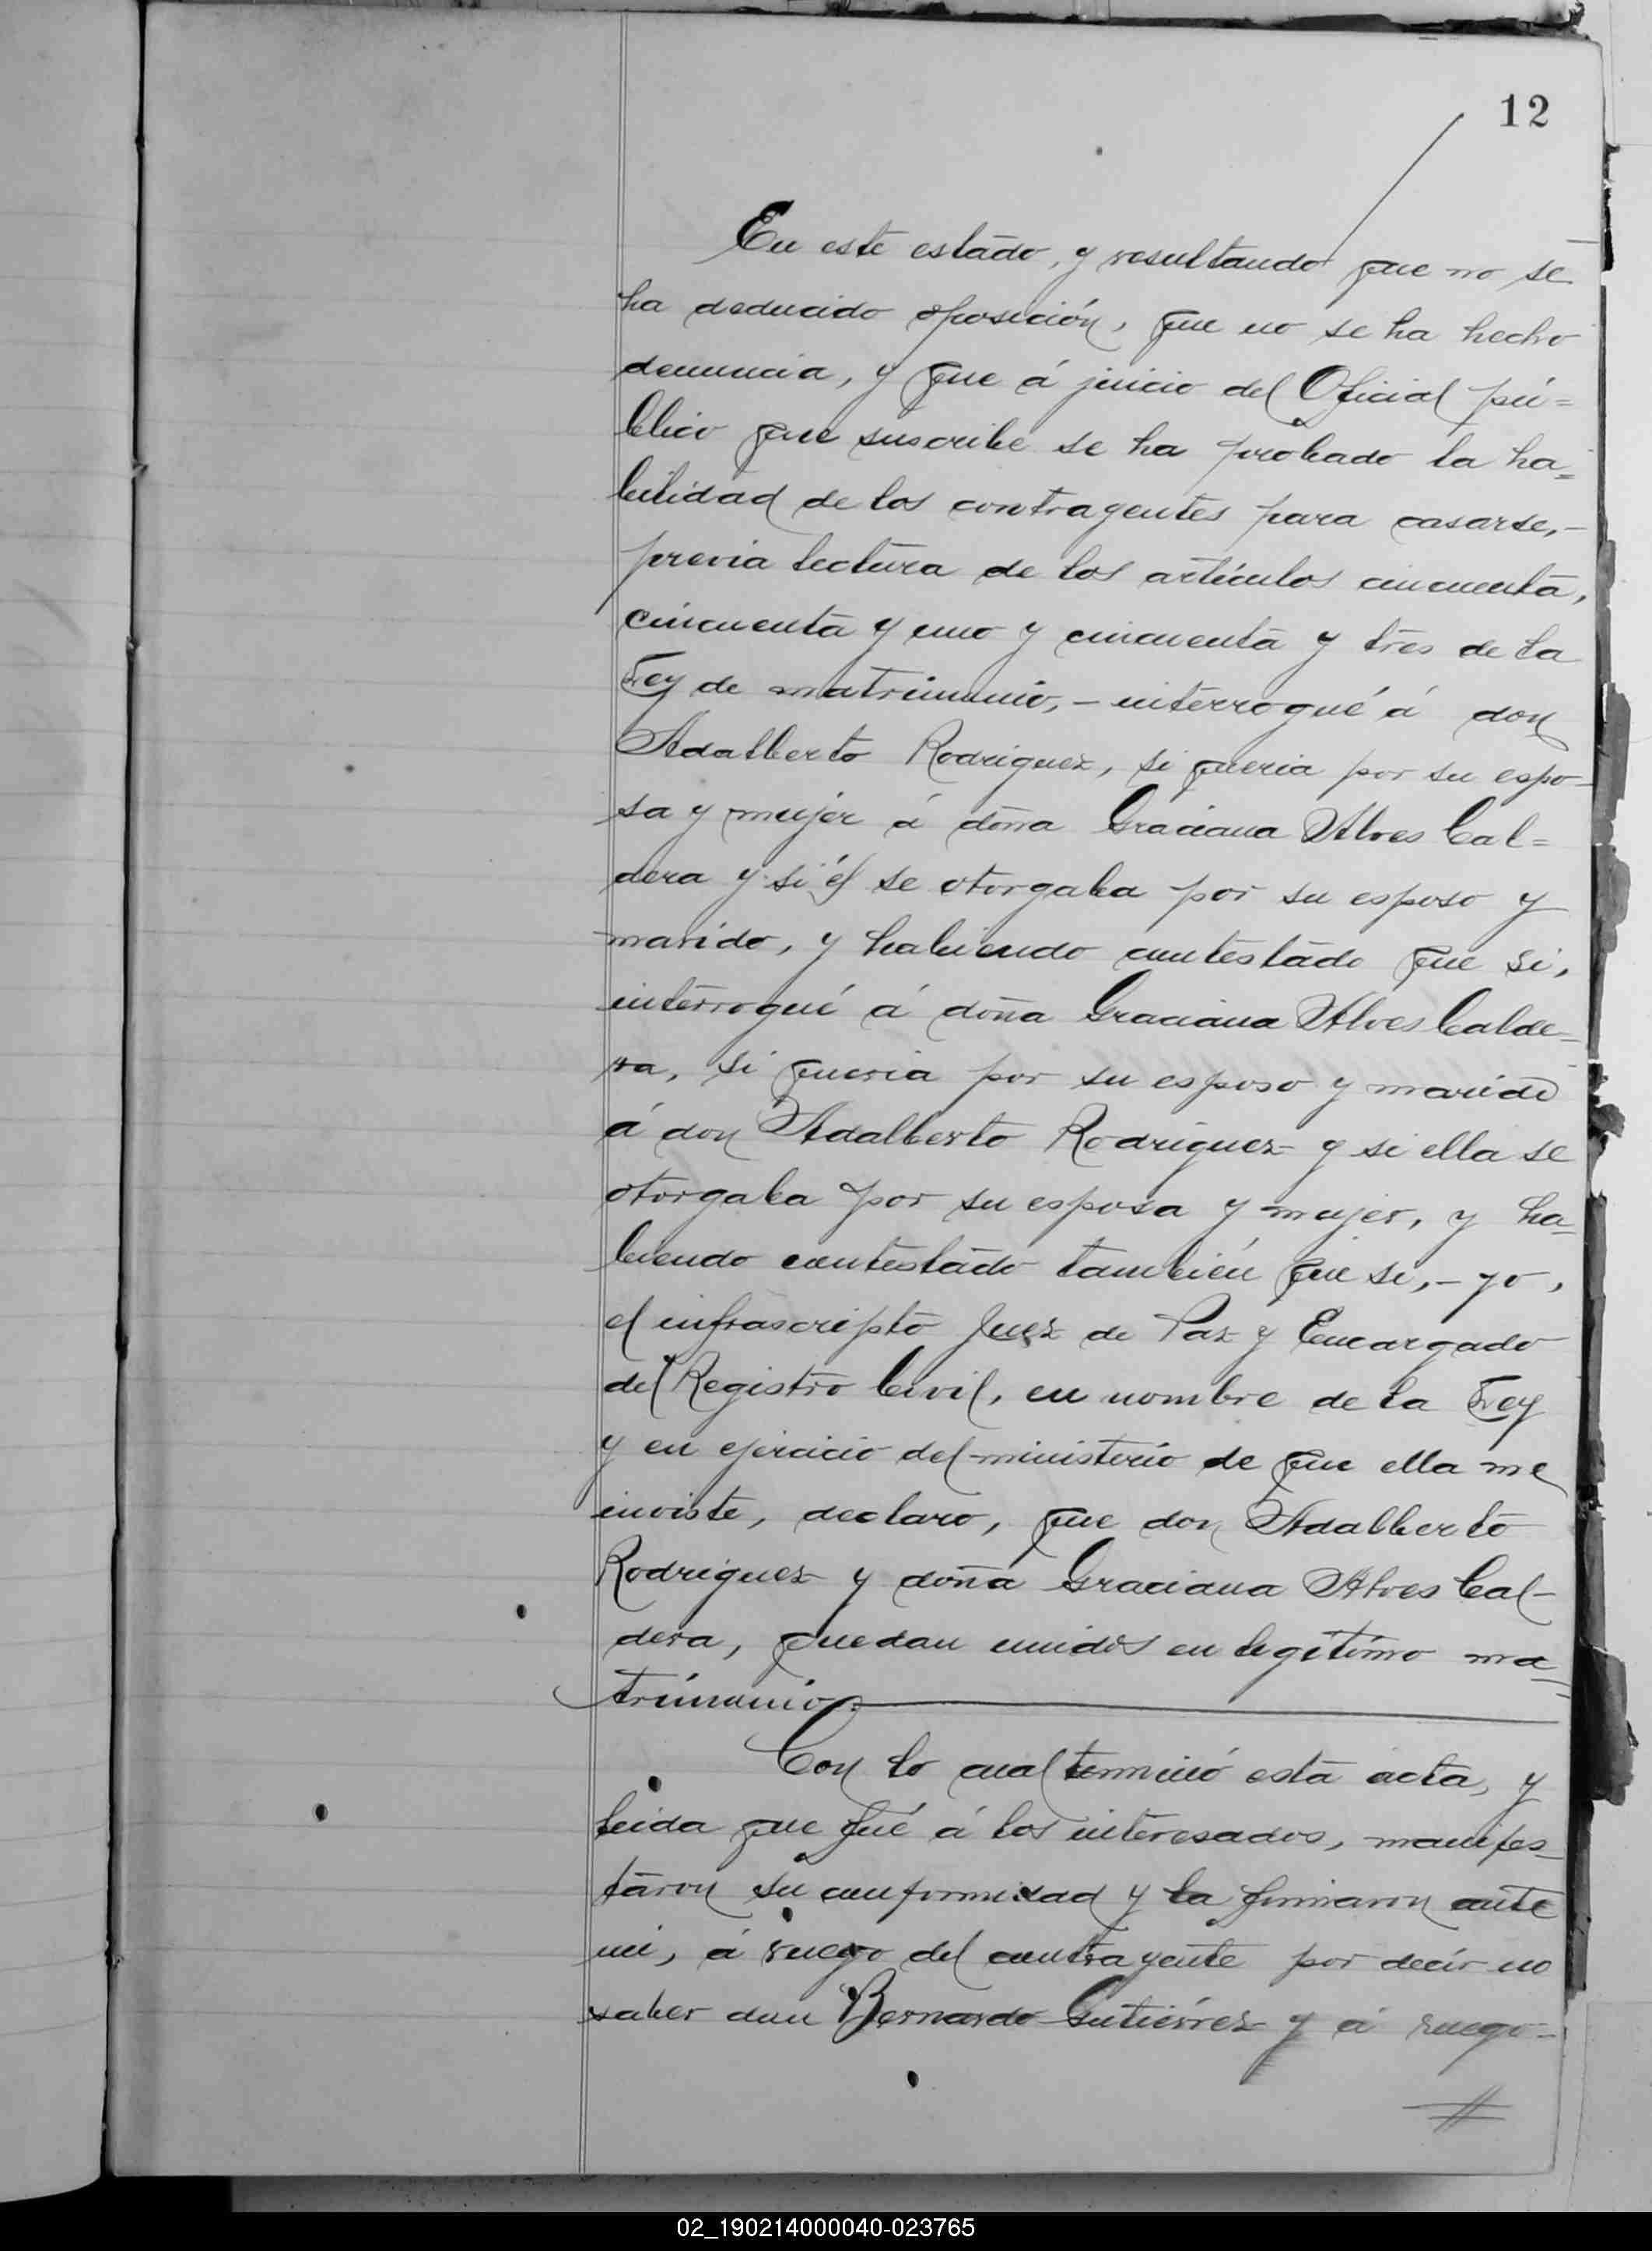 12
En este estado, y resultando que no se
ha deducido oposición, que no se ha hecho
denuncia, y que á juicio del Oficial pú=
blico que suscribe se ha probado la ha=
bilidad de los contragentes para casarse,-
previa lectura de los artículos cincuenta,
cincuenta y uno y cincuenta y tres de la
Ley de matrimonio,- interrogué á don
Adalberto Rodriguez, si queria por su espo-
sa y mujer á doña Graciana Alves Cal=
dera y si él se otorgaba por su esposo y
marido, y habiendo contestado que si,
interrogué á doña Graciana Alves Calde-
ra, si queria por su esposo y marido
á don Adalberto Rodriguez y si ella se
otorgaba por su esposa y mujer, y ha-
biendo contestado también que si,- yo,
el infrascripto Juez de Paz y Encargado
del Registro Civil, en nombre de la Ley
y en ejercicio del ministerio de que ella me
inviste, declaro, que don Adalberto
Rodriguez y doña Graciana Alves Cal-
dera, quedan unidos en legítimo ma=
trimonio.
Con lo cual terminó esta acta, y
leida que fué á los interesados, manifes-
taron su conformidad y la firmaron ante
mi, á ruego del contrayente por decir no
saber don Bernardo Gutiérrez y á ruego-
02_190214000040-023765